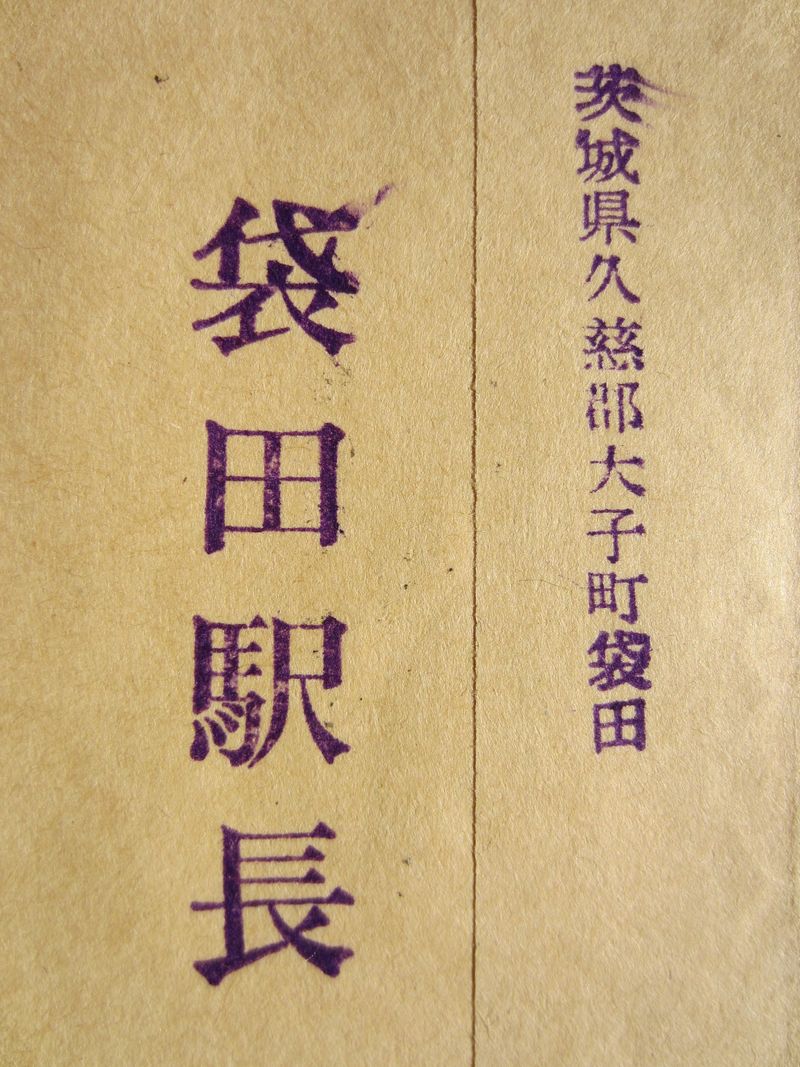 茨城県久慈郡大子町袋田
袋田駅長